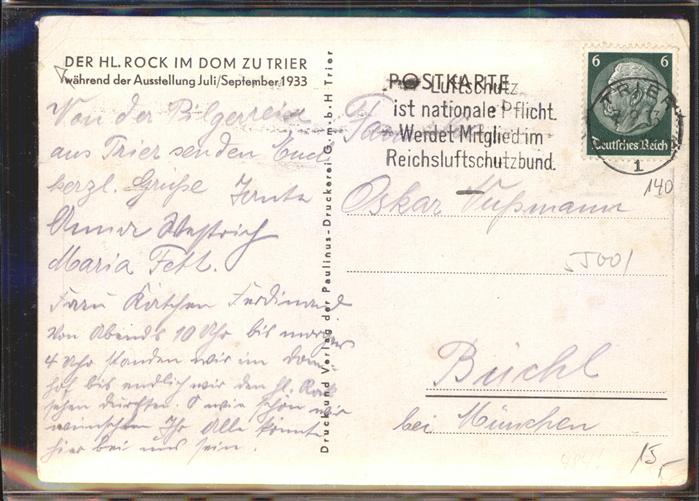 DER HL. ROCK IM DOM ZU TRIER
während der Ausstellung Juli/September 1933
Von der Pilgerreise
aus Trier senden Euch
herzl. Grüße
Anna Westrich
Maria Fett.
Frau Kätchen Ferdinand
Von Abends 10 Uhr bis morgens
4 Uhr standen wir im Dom
hof bis endlich wir den hl. Rock
sehen durften. O wie schön wir
wünschten Ihr Alle könnte
hier bei uns sein.
Druck und Verlag der Paulinus-Druckerei G.m.b.H Trier
POSTKARTE
Luftschutz
ist nationale Pflicht.
Werdet Mitglied im
Reichsluftschutzbund.
6 6
Deutsches Reich
TRIER
1
140
Oskar Nußmann
Büchl
bei München